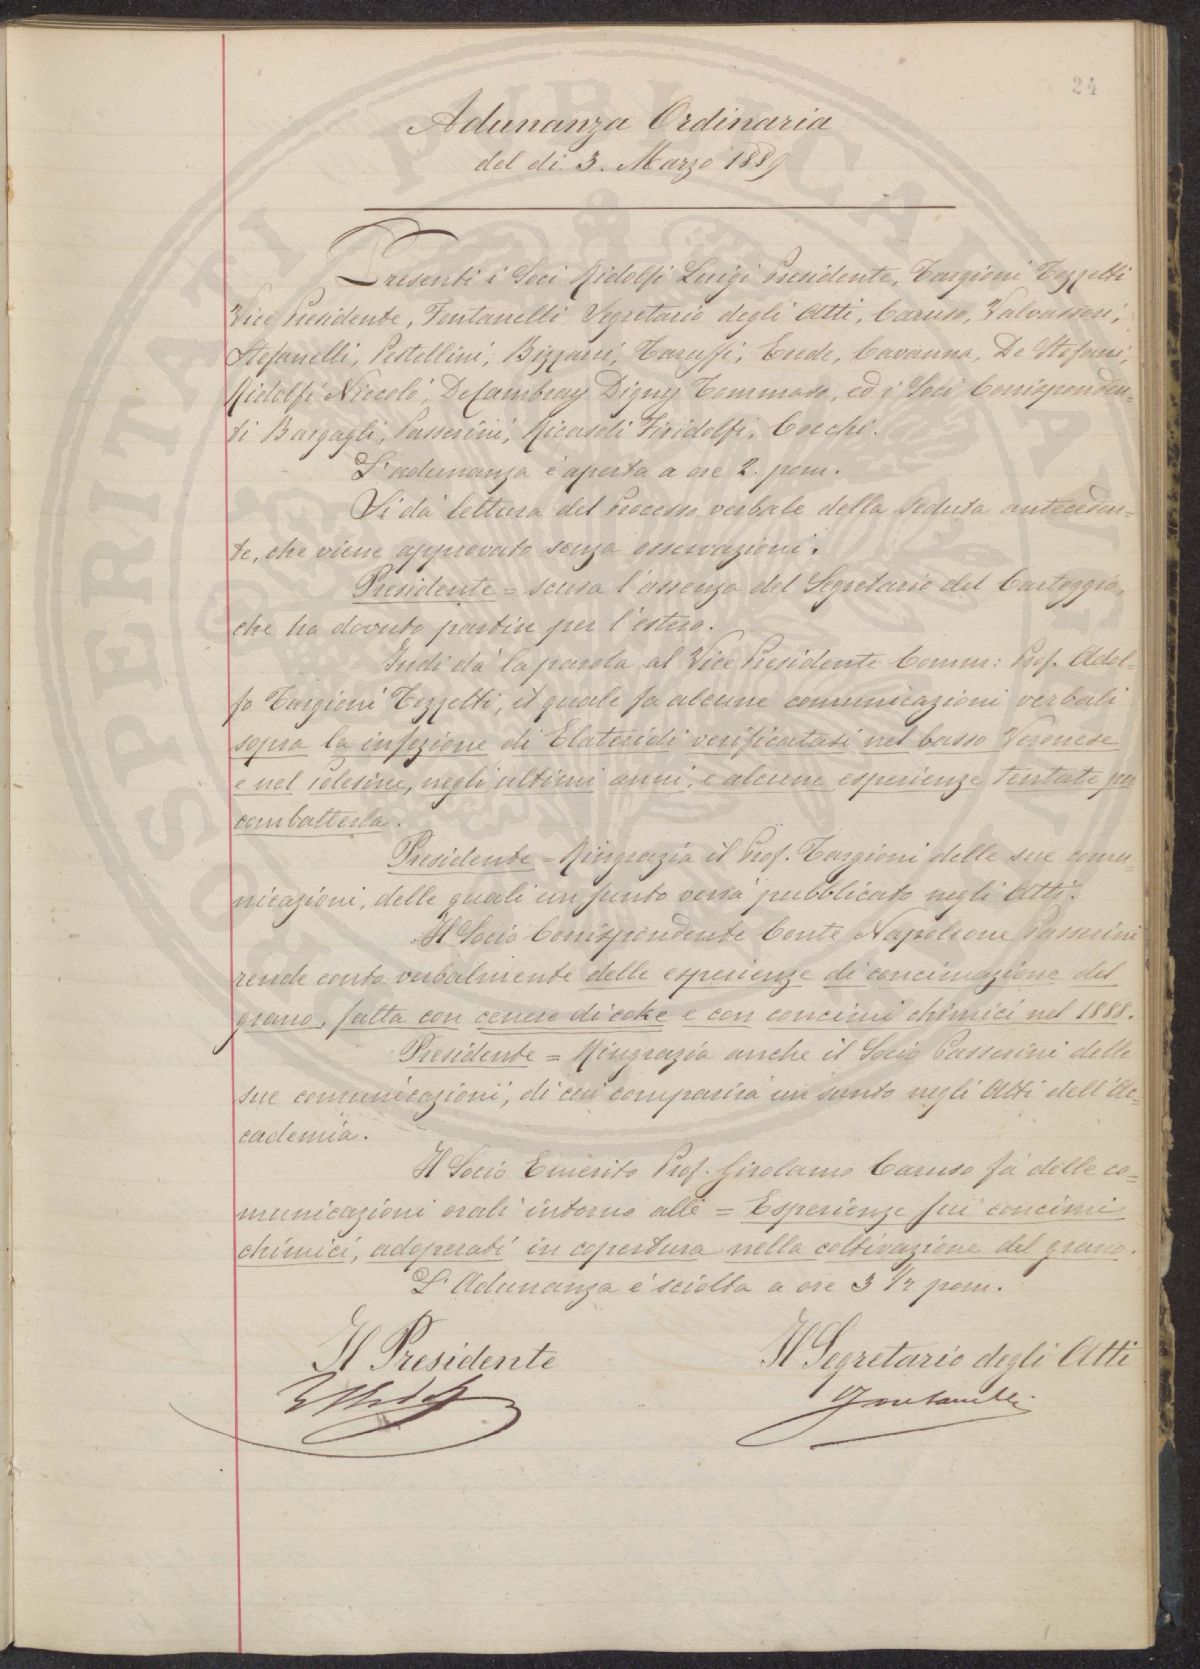 24
Adunanza Ordinaria
del di 3. Marzo 1889
Presenti i Soci Ridolfi Luigi Presidente, Targioni Tozzetti
Vice Presidente, Fontanelli Segretario degli Atti, Caruso, Valvassori,
Stefanelli, Pestellini, Bizzarri, Taruffi, Erede, Cavanna, De Stefani,
Ridolfi Niccolò, De Cambray Digny Tommaso, ed i Soci Corrisponden=
ti Bargagli, Passerini, Ricasoli Firidolfi, Cocchi.
L'adunanza è aperta a ore 2. pom.
Si dà lettura del Processo verbale della seduta anteceden=
te, che viene approvato senza osservazioni.
Presidente = scusa l'assenza del Segretario del Carteggio,
che ha dovuto partire per l'estero.
Indi dà la parola al Vice Presidente Comm: Prof. Adol=
fo Targioni Tozzetti, il quale fa alcune comunicazioni verbali
sopra la infezione di Elateridi verificatasi nel basso Veronese
e nel Polesine, negli ultimi anni, e alcune esperienze tentate per
combatterla.
Presidente = Ringrazia il Prof. Targioni delle sue comu=
nicazioni, delle quali un sunto verrà pubblicato negli Atti.
Il Socio Corrispondente Conte Napoleone Passerini
rende conto verbalmente delle esperienze di concimazione del
grano, fatta con cenere di coke e con concimi chimici nel 1888.
Presidente = Ringrazia anche il Socio Passerini delle
sue comunicazioni, di cui comparirà un sunto negli Atti dell'Ac=
cademia.
Il Socio Emerito Prof. Girolamo Caruso fà delle co=
municazioni orali intorno alle = Esperienze sui concimi
chimici, adoperati in copertura nella coltivazione del grano.
L'Adunanza è sciolta a ore 3 1/2 pom.
Il Presidente Il Segretario degli Atti
Fontanelli
SOSPERITATI PUBLICAE